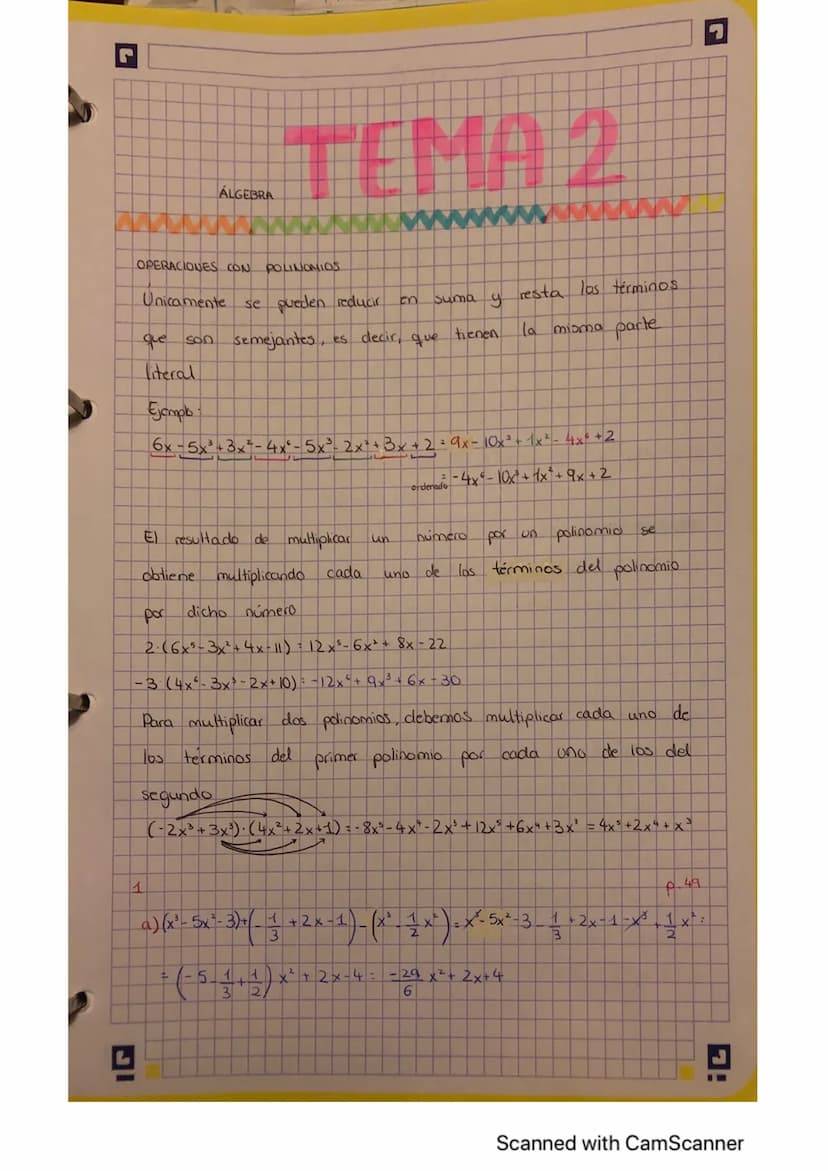 TEMA 2
ÁLGEBRA
OPERACIONES CON POLINOMIOS
Únicamente se pueden reducir en suma y resta los términos
que son semejantes, es decir, que tienen la misma parte
literal
Ejemplo:
6x - 5x³ + 3x² - 4x⁶ - 5x³ - 2x² + 3x + 2 = 9x - 10x³ + 1x² - 4x⁶ + 2
ordenado = -4x⁶ - 10x³ + 1x² + 9x + 2
El resultado de multiplicar un número por un polinomio se
obtiene multiplicando cada uno de los términos del polinomio
por dicho número
2·(6x⁵ - 3x² + 4x - 11) = 12x⁵ - 6x² + 8x - 22
-3·(4x⁶ - 3x³ - 2x + 10) = -12x⁶ + 9x³ + 6x - 30
Para multiplicar dos polinomios, debemos multiplicar cada uno de
los términos del primer polinomio por cada uno de los del
segundo
(-2x³ + 3x³)·(4x² + 2x + 1) = -8x⁵ - 4x⁴ - 2x³ + 12x⁵ + 6x⁴ + 3x³ = 4x⁵ + 2x⁴ + x³
1 p.49
a) (x³ - 5x² - 3) + (-1/3 + 2x - 1) - (x³ - 1/2 x²) = x³ - 5x² - 3 - 1/3 + 2x - 1 - x³ + 1/2 x² =
= (-5 - 1/3 + 1/2) x² + 2x - 4 = -29/6 x² + 2x + 4
Scanned with CamScanner